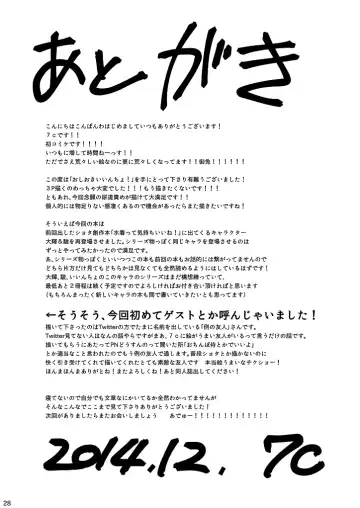 あとがき
こんにちはこんばんわはじめましていつもありがとうございます！
７cです！！
初コミケです！！！！
いつもに増して時間ねーっす！！
ただでさえ荒々しい絵なのに更に荒々しくなってます！！！御免！！！！！！
この度は「おしおきいいんちょ！」を手にとって下さり有難うございました！
３P描くのめっちゃ大変でした！！！もう描きたくないです！！！
ともあれ、今回念願の尿道責めが描けて大満足です！！！
個人的には物足りない感凄くあるので機会があったらまた描きたいですね！
そういえば今回の本は
前回出したショタ創作本「水着って気持ちいいね！」に出てくるキャラクター
大輝&駿を再登場させました。シリーズ物っぽく同じキャラを登場させるのは
ずっとやってみたかったので満足です。
あ、シリーズ物っぽくといいつつこの本も前の本もお話的には繋がってませんので
どちら片方だけ見てもどちらかは見なくても全然読めるようにしているはずです！
大輝、駿、いいんちょのこのキャラのシリーズはまだ構想練っていて、
最低あと２冊程は続く予定ですのでよろしければお付き合い頂ければと思います
（もちろんまったく新しいキャラの本も間で書いていきたいとも思ってます）
←そうそう、今回初めてゲストとか呼んじゃいました！
描いて下さったのはTwitterの方でたまに名前を出している「例の友人」さんです。
Twitter見てない人はなんの話やらですがまあ、７cに絵がうまい友人がいるって言うだけの話です。
描いてもらうにあたってPNどうすんのって聞いた所「おちんぽ侍とかでいいよ」
とか適当なこと言われたのでもう例の友人で通します。普段ショタとか描かないのに
快く引き受けてくれて描いてくれたとても素敵な友人です　本当絵うまいなチクショー！
ほんまほんまありがとね！またよろしくね！あと同人誌出してください！
寝てないので自分でも文章なにかいてるか全然わかってませんが
そんなこんなでここまで見て下さりありがとうございました！
次回がありましたらまたお会いしましょう　あでゅー！！！！！！！！！！！！！
2014.12. 7c
28